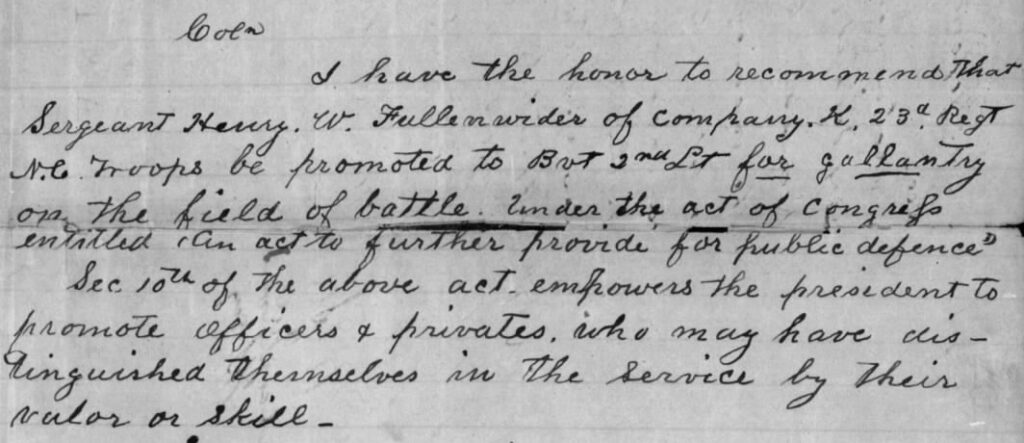 Coln
I have the honor to recommend that
Sergeant Henry. W. Fullenwider of Company. K. 23d. Regt
N.C. Troops be promoted to Bvt 2nd Lt for gallantry
on the field of battle. Under the act of Congress
entitled "An act to further provide for public defence"
Sec 10th of the above act. empowers the president to
promote officers & privates. who may have dis-
tinguished themselves in the service by their
valor or skill-